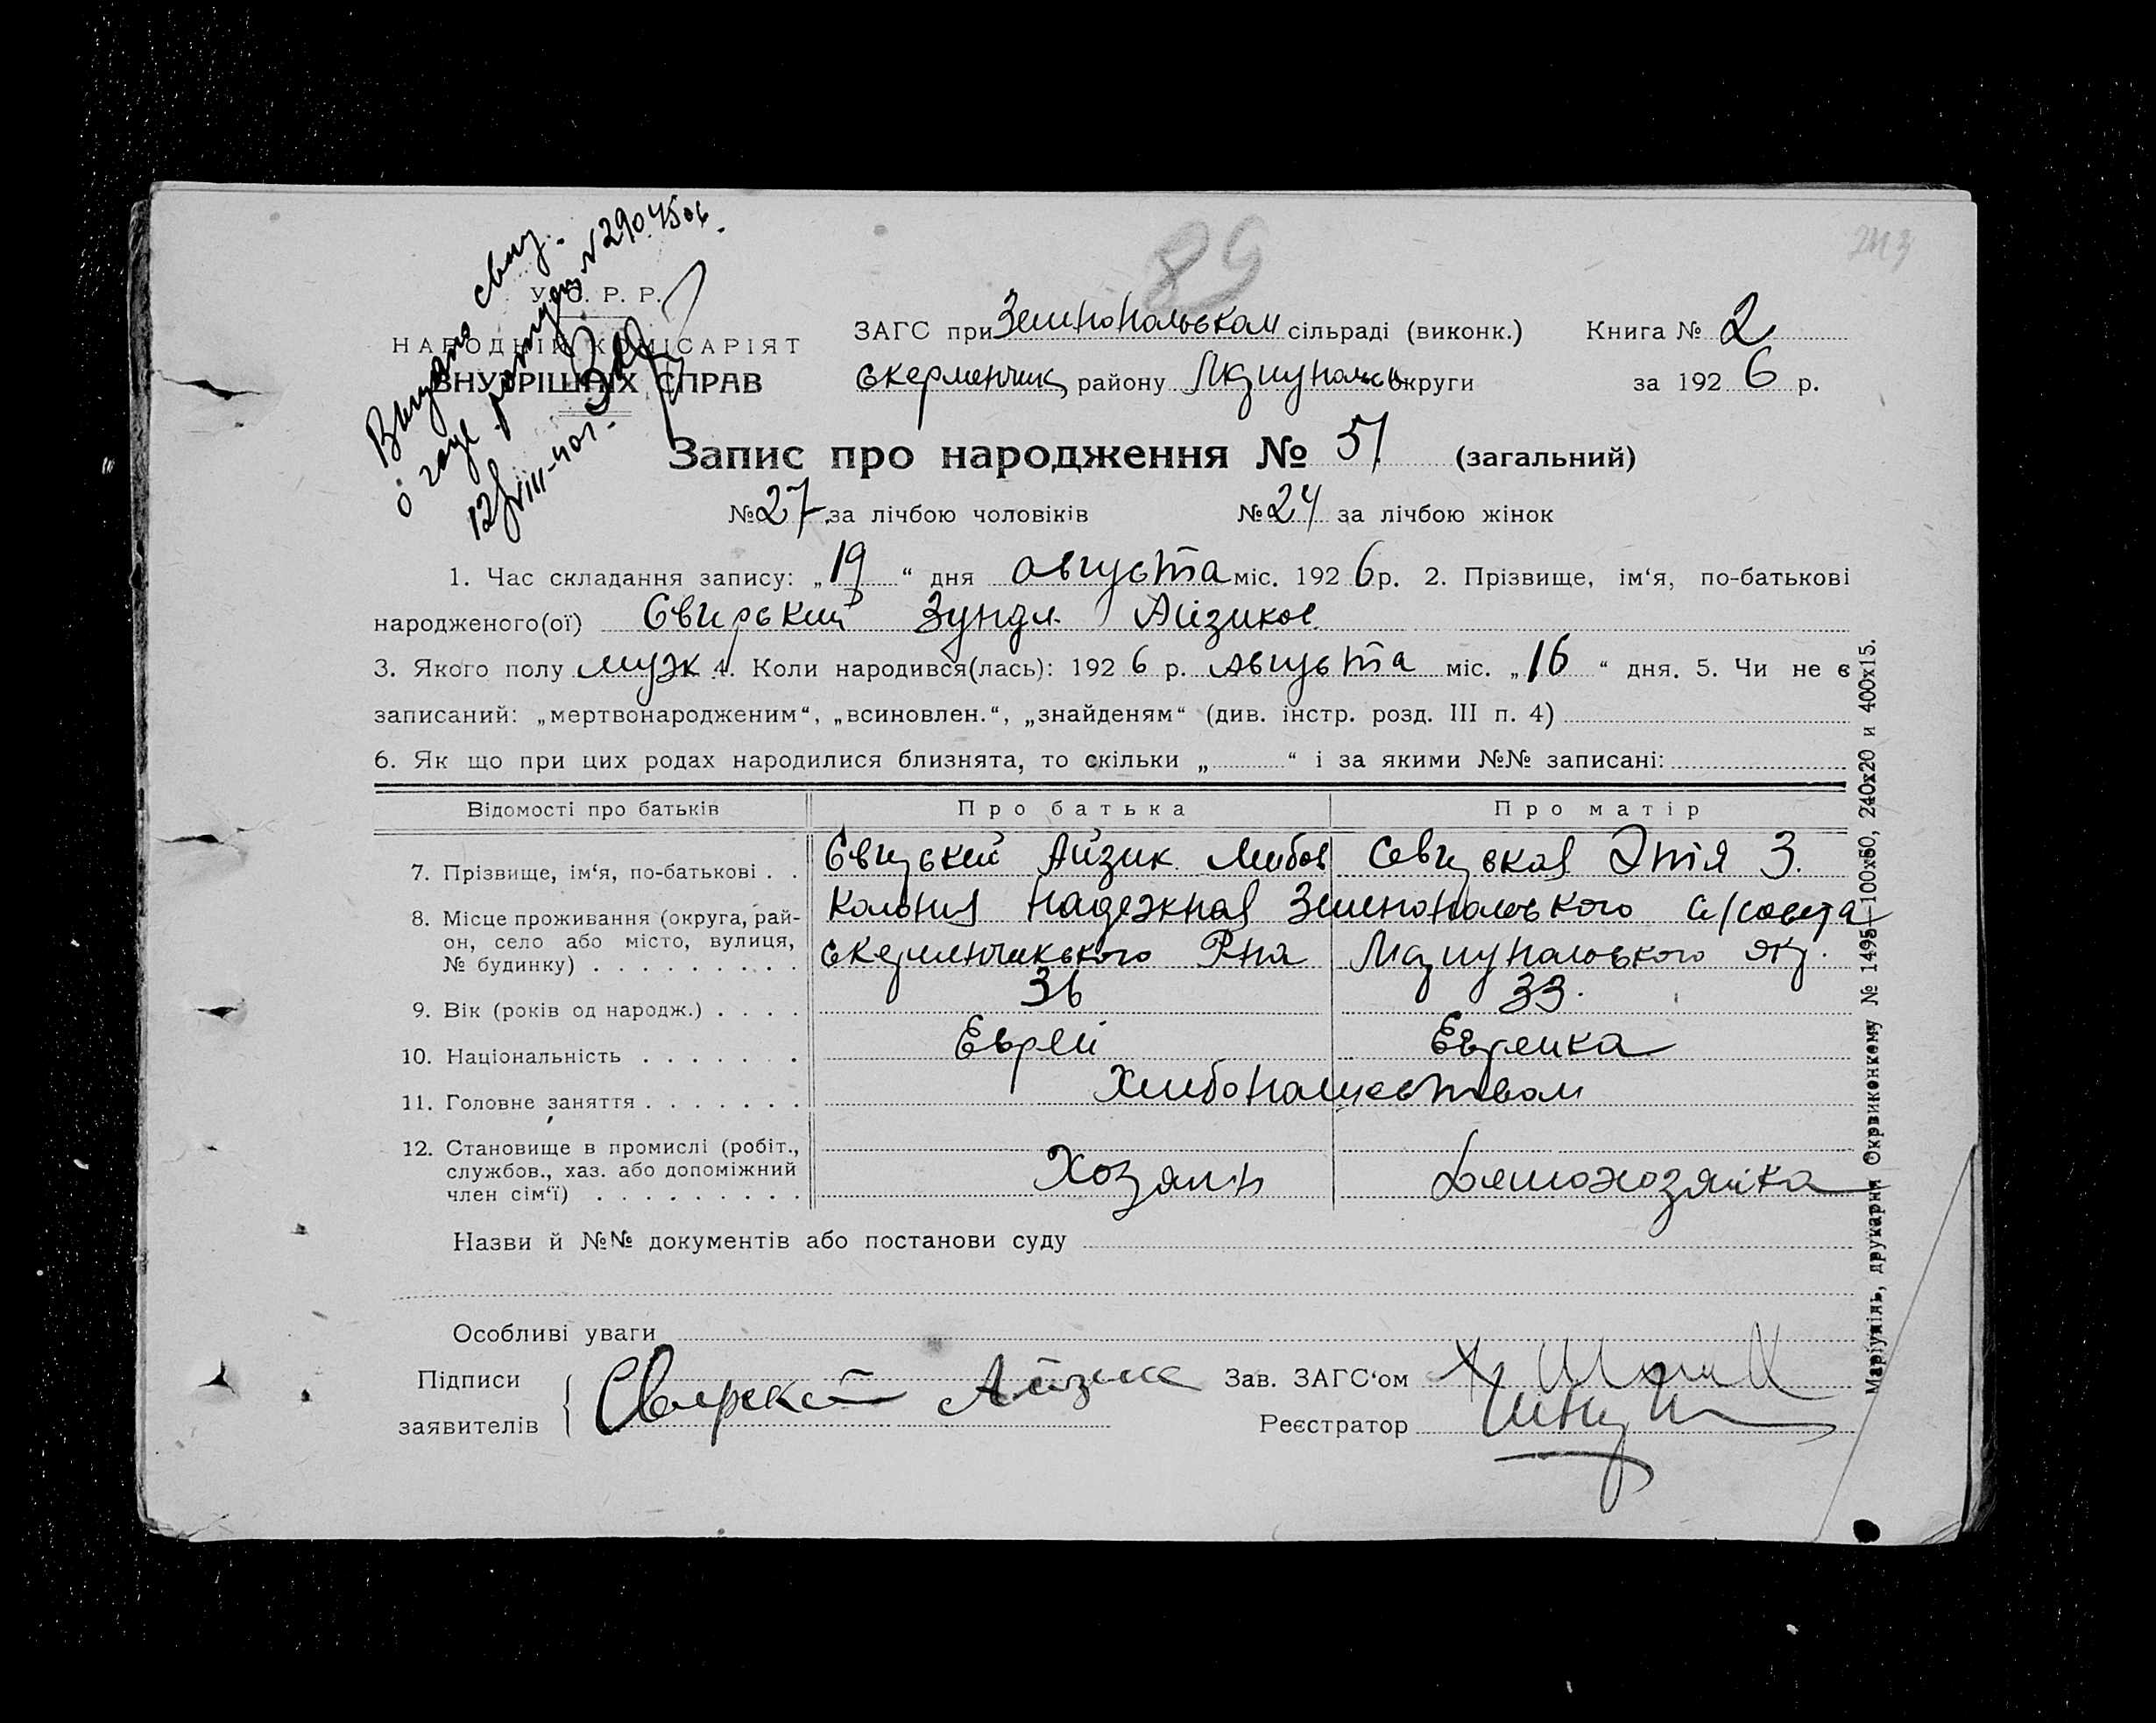 89
243
Выдано свид.
о годе рожден. № 290. 4506.
12/VIII-40г.
У. С. Р. Р.
НАРОДНІЙ КОМІСАРІЯТ
ВНУТРІШНІХ СПРАВ
ЗАГС при Зеленопольском сільраді (виконк.) Книга № 2
Скерменчик району Мариупольс округи за 1926 р.
Запис про народження № 51 (загальний)
№ 27 за лічбою чоловіків № 24 за лічбою жінок
1. Час складання запису: „19“ дня августа міс. 1926 р. 2. Прізвище, ім‘я, по-батькові
народженого(ої) Свирский Зундл Айзиков
3. Якого полу муж 4. Коли народився(лась): 1926 р. августа міс. „16“ дня. 5. Чи не є
записаний: „мертвонародженим“, „всиновлен.“, „знайденям“ (див. інстр. розд. III п. 4)
6. Як що при цих родах народилися близнята, то скільки „ “ і за якими №№ записані:
Відомості про батьків Про батька Про матір
7. Прізвище, ім‘я, по-батькові . . Свирский Айзик Лейбов Свирская Этя З.
8. Місце проживання (округа, рай- Колония Надежная Зеленопольского с/совета
он, село або місто, вулиця, Скерменчикского Рна Мариупольского окр.
№ будинку) . . . . . . . . .
9. Вік (років од народж.) . . . . 36 33.
10. Національність . . . . . . Еврей Еврейка
11. Головне заняття . . . . . . . Хлебопашеством
12. Становище в промислі (робіт.,
службов., хаз. або допоміжний Хозяин Домохозяйка
член сім‘ї) . . . . . . . . .
Назви й №№ документів або постанови суду
Особливі уваги
Підписи Свирский Айзик Зав. ЗАГС‘ом
заявителів Реєстратор
Маріупіль, друкарня Окрвиконкому № 1495—100х60, 240х20 и 400х15.